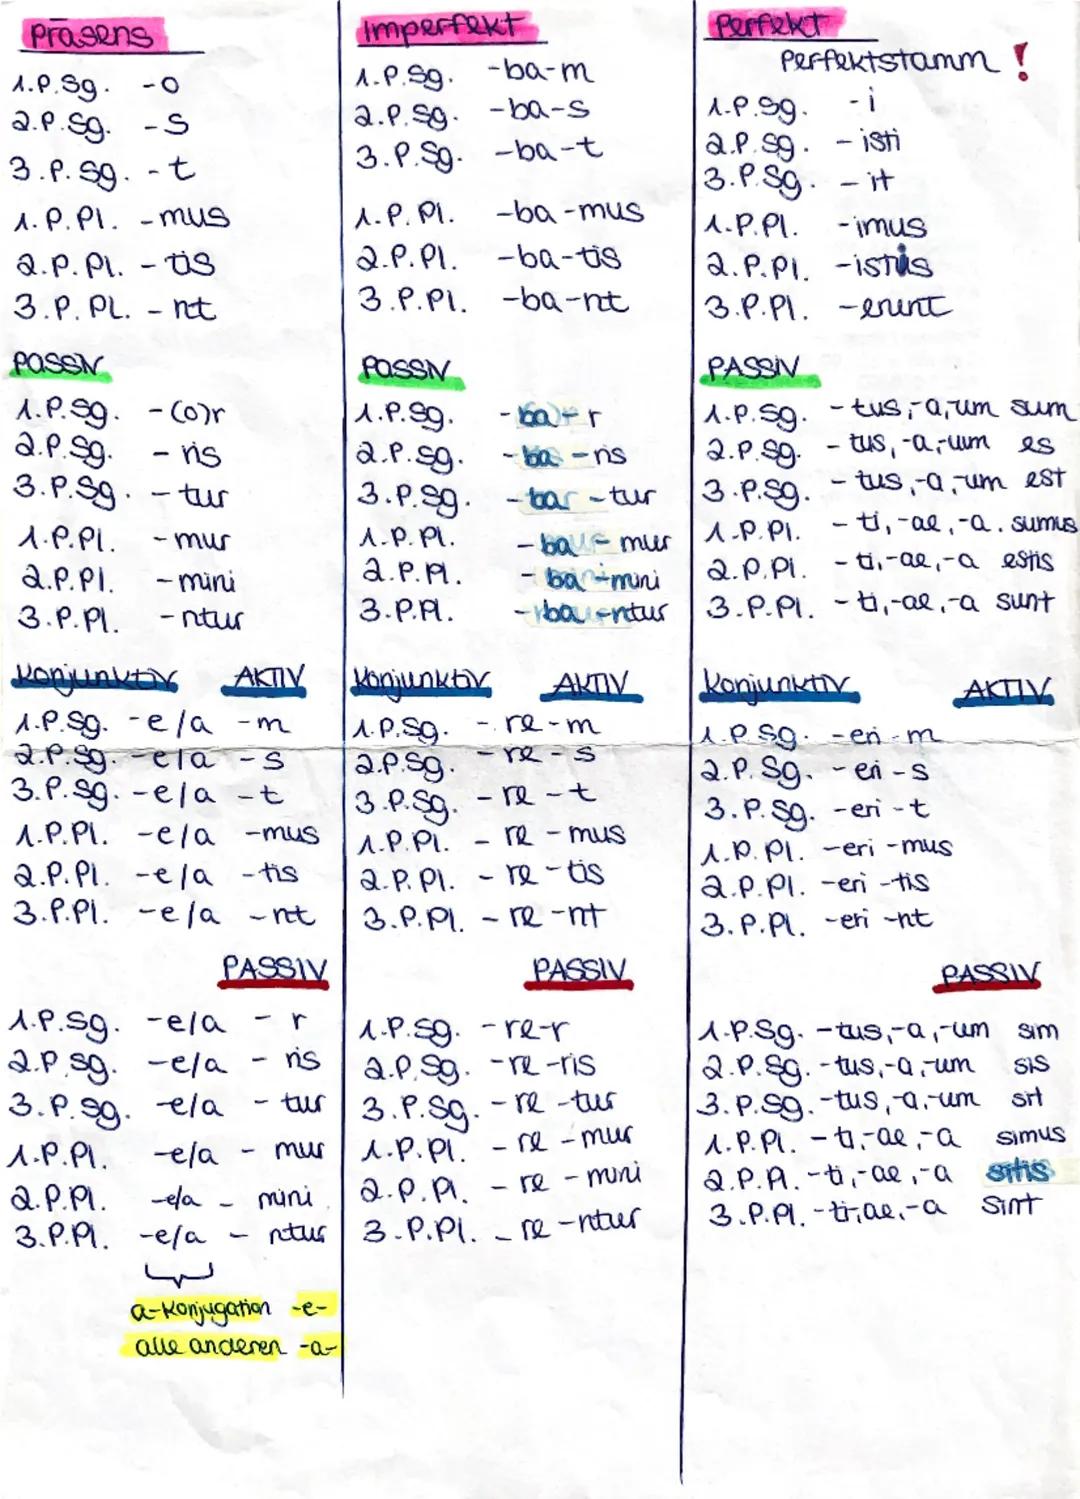 Präsens
1.P.Sg. -o
2.P.Sg. -s
3.P.Sg. -t
1.P.Pl. -mus
2.P.Pl. -tis
3.P.PL. -nt
PASSIV
1.P.Sg. -(o)r
2.P.Sg. -ris
3.P.Sg. -tur
1.P.Pl. -mur
2.P.Pl. -mini
3.P.Pl. -ntur
Konjunktiv AKTIV
1.P.Sg. -e/a -m
2.P.Sg. -e/a -s
3.P.Sg. -e/a -t
1.P.Pl. -e/a -mus
2.P.Pl. -e/a -tis
3.P.Pl. -e/a -nt
PASSIV
1.P.Sg. -e/a - r
2.P.Sg. -e/a - ris
3.P.Sg. -e/a - tur
1.P.Pl. -e/a - mur
2.P.Pl. -e/a - mini
3.P.Pl. -e/a - ntur
a-Konjugation -e-
alle anderen -a-
Imperfekt
1.P.Sg. -ba-m
2.P.Sg. -ba-s
3.P.Sg. -ba-t
1.P.Pl. -ba-mus
2.P.Pl. -ba-tis
3.P.Pl. -ba-nt
PASSIV
1.P.Sg. -ba-r
2.P.Sg. -ba-ris
3.P.Sg. -ba-tur
1.P.Pl. -ba-mur
2.P.Pl. -ba-mini
3.P.Pl. -ba-ntur
Konjunktiv AKTIV
1.P.Sg. -re-m
2.P.Sg. -re-s
3.P.Sg. -re-t
1.P.Pl. -re-mus
2.P.Pl. -re-tis
3.P.Pl. -re-nt
PASSIV
1.P.Sg. -re-r
2.P.Sg. -re-ris
3.P.Sg. -re-tur
1.P.Pl. -re-mur
2.P.Pl. -re-mini
3.P.Pl. -re-ntur
Perfekt
Perfektstamm !
1.P.Sg. -i
2.P.Sg. -isti
3.P.Sg. -it
1.P.Pl. -imus
2.P.Pl. -istis
3.P.Pl. -erunt
PASSIV
1.P.Sg. -tus,-a,um sum
2.P.Sg. -tus,-a,-um es
3.P.Sg. -tus,-a,-um est
1.P.Pl. -ti,-ae,-a. sumus
2.P.Pl. -ti,-ae,-a estis
3.P.Pl. -ti,-ae,-a sunt
Konjunktiv AKTIV
1.P.Sg. -eri-m
2.P.Sg. -eri-s
3.P.Sg. -eri-t
1.P.Pl. -eri-mus
2.P.Pl. -eri-tis
3.P.Pl. -eri-nt
PASSIV
1.P.Sg. -tus,-a,-um sim
2.P.Sg. -tus,-a,-um sis
3.P.Sg. -tus,-a,-um sit
1.P.Pl. -ti,-ae,-a simus
2.P.Pl. -ti,-ae,-a sitis
3.P.Pl. -ti,ae,-a sint